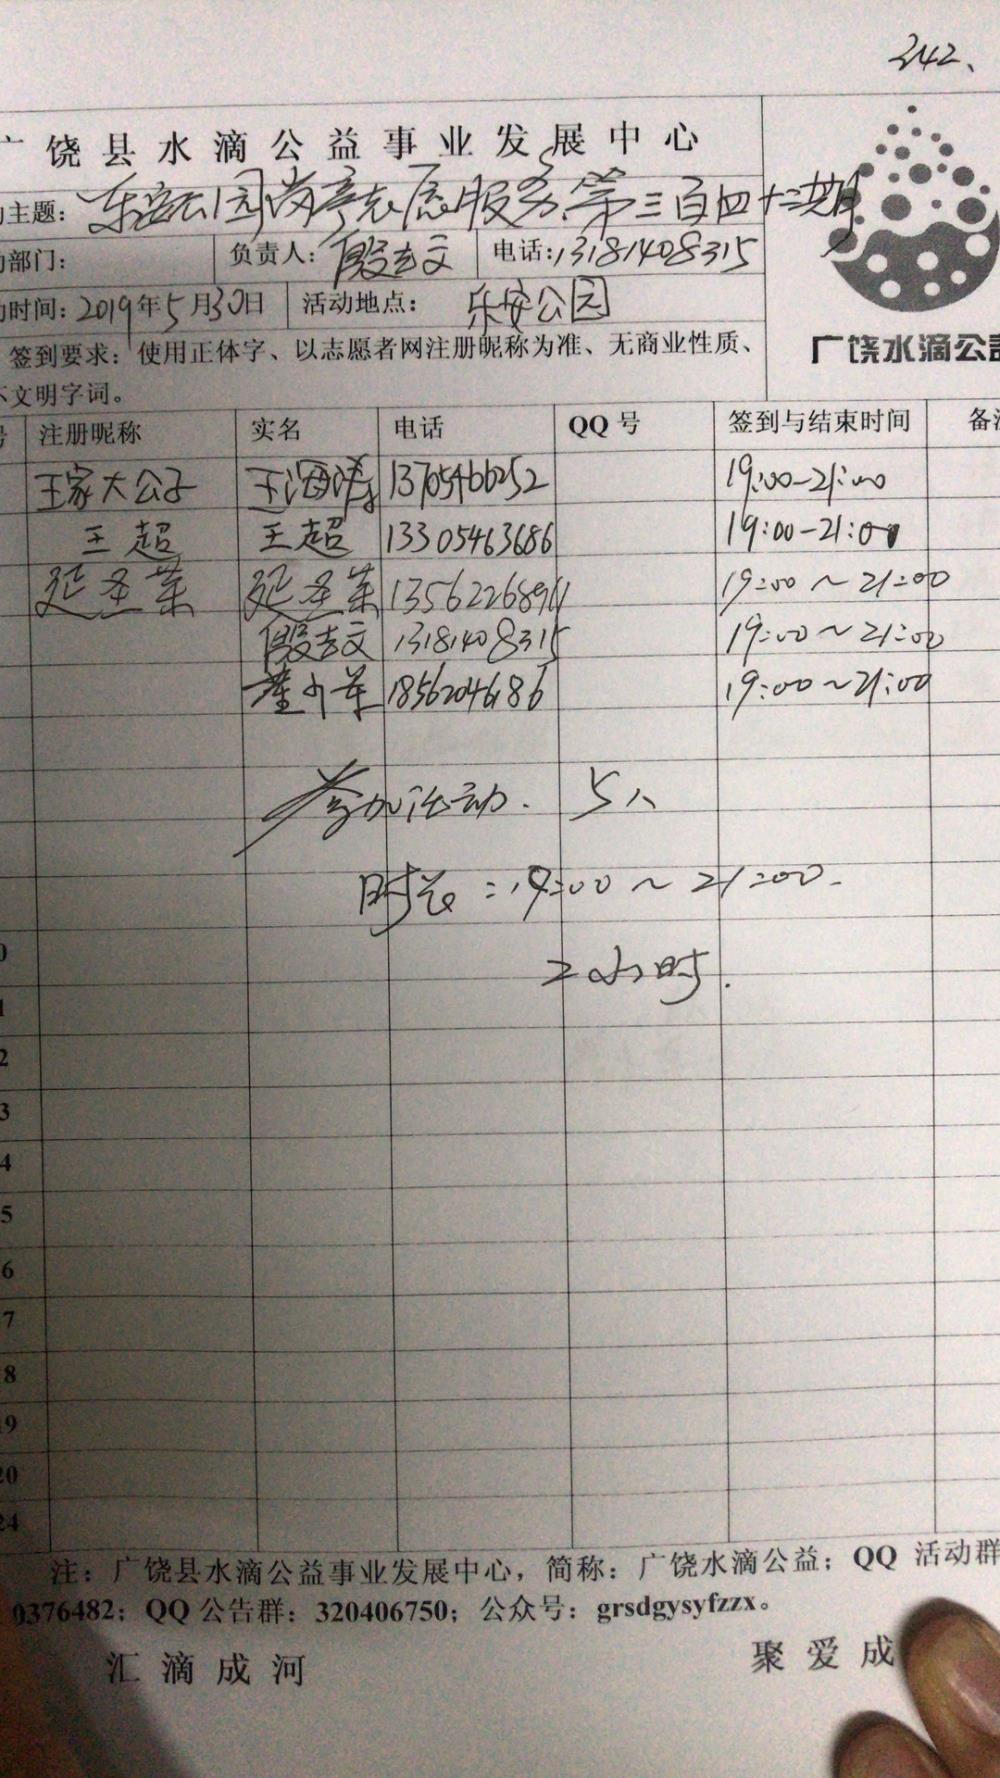 342、
广饶县水滴公益事业发展中心
主题：乐安公园岗亭志愿服务第三百四十二期
部门： 负责人：殷志文 电话：13181408315
时间：2019年5月30日 活动地点：乐安公园
广饶水滴公
签到要求：使用正体字、以志愿者网注册昵称为准、无商业性质、
不文明字词。
号 注册昵称 实名 电话 QQ 号 签到与结束时间 备
王家大公子 王海涛 13705466252 19:00-21:00
王超 王超 13305463686 19:00-21:00
延圣荣 延圣荣 1356226894 19:00～21:00
殷志文 13181408315 19:00～21:00
董 18562046186 19:00～21:00
参加活动. 5人
时长：19:00～21:00.
2小时.
0
1
2
3
4
5
6
7
8
19
20
24
注：广饶县水滴公益事业发展中心，简称：广饶水滴公益；QQ 活动群
0376482；QQ 公告群：320406750；公众号：grsdgysyfzzx。
汇滴成河 聚爱成